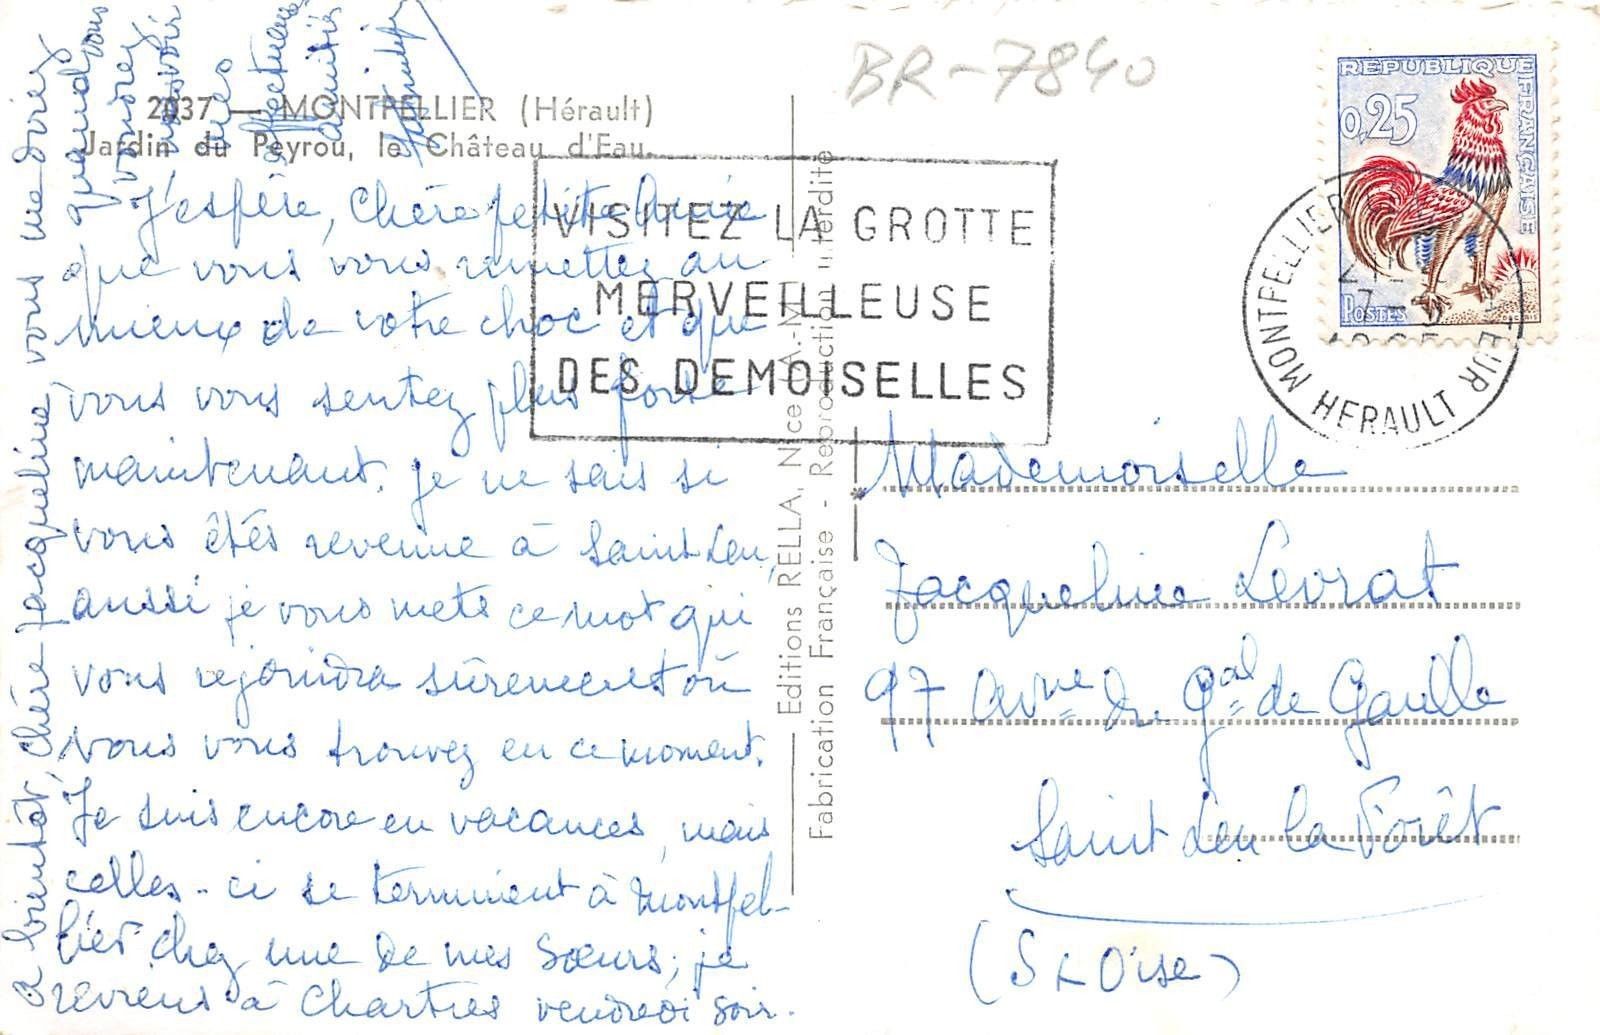 2037 — MONTPELLIER (Hérault)
Jardin du Peyrou, le Château d'Eau.
J'espère, chère petite Amie
que vous vous remettez au
mieux de votre choc et que
vous vous sentez plus forte
maintenant. Je ne sais si
vous êtes revenue à Saint Leu,
aussi je vous mets ce mot qui
vous rejoindra sûrement où
vous vous trouvez en ce moment.
Je suis encore en vacances, mais
celles-ci se terminent à Montpel-
lier chez une de mes sœurs; je
reviens à Chartres vendredi soir.
A bientôt, chère Jacqueline vous me direz
quand vous
voudrez
me voir
mes
affectueuses
amitiés
Editions RELLA, Nice A.-M.
Fabrication Française - Reproduction interdite
BR-7840
VISITEZ LA GROTTE
MERVEILLEUSE
DES DEMOISELLES
REPUBLIQUE FRANÇAISE
0,25
POSTES
MONTPELLIER
HERAULT
Mademoiselle
Jacqueline Levrat
97 avne du Gal de Gaulle
Saint Leu la Forêt
(S & Oise)